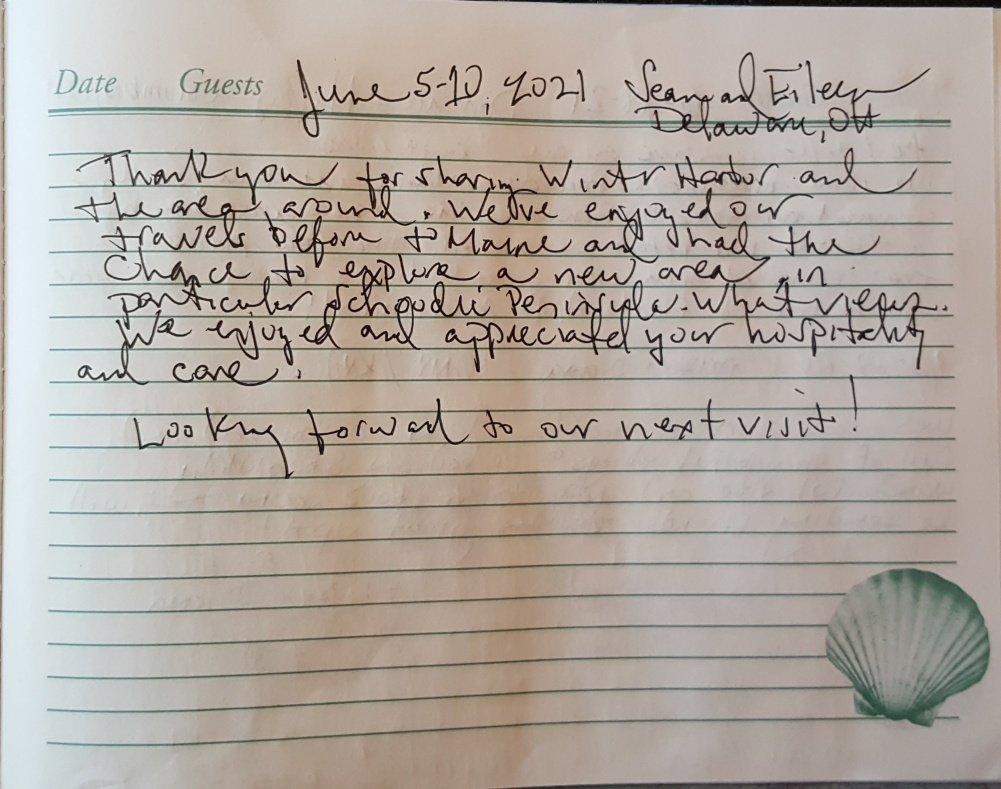 Date Guests June 5-10, 2021 Sean and Eileen
Delaware, OH
Thank you for sharing Winter Harbor and
the area around. We've enjoyed our
travels before to Maine and had the
chance to explore a new area, in
particular Schoodic Peninsula. What views.
We enjoyed and appreciated your hospitality
and care.
Looking forward to our next visit!